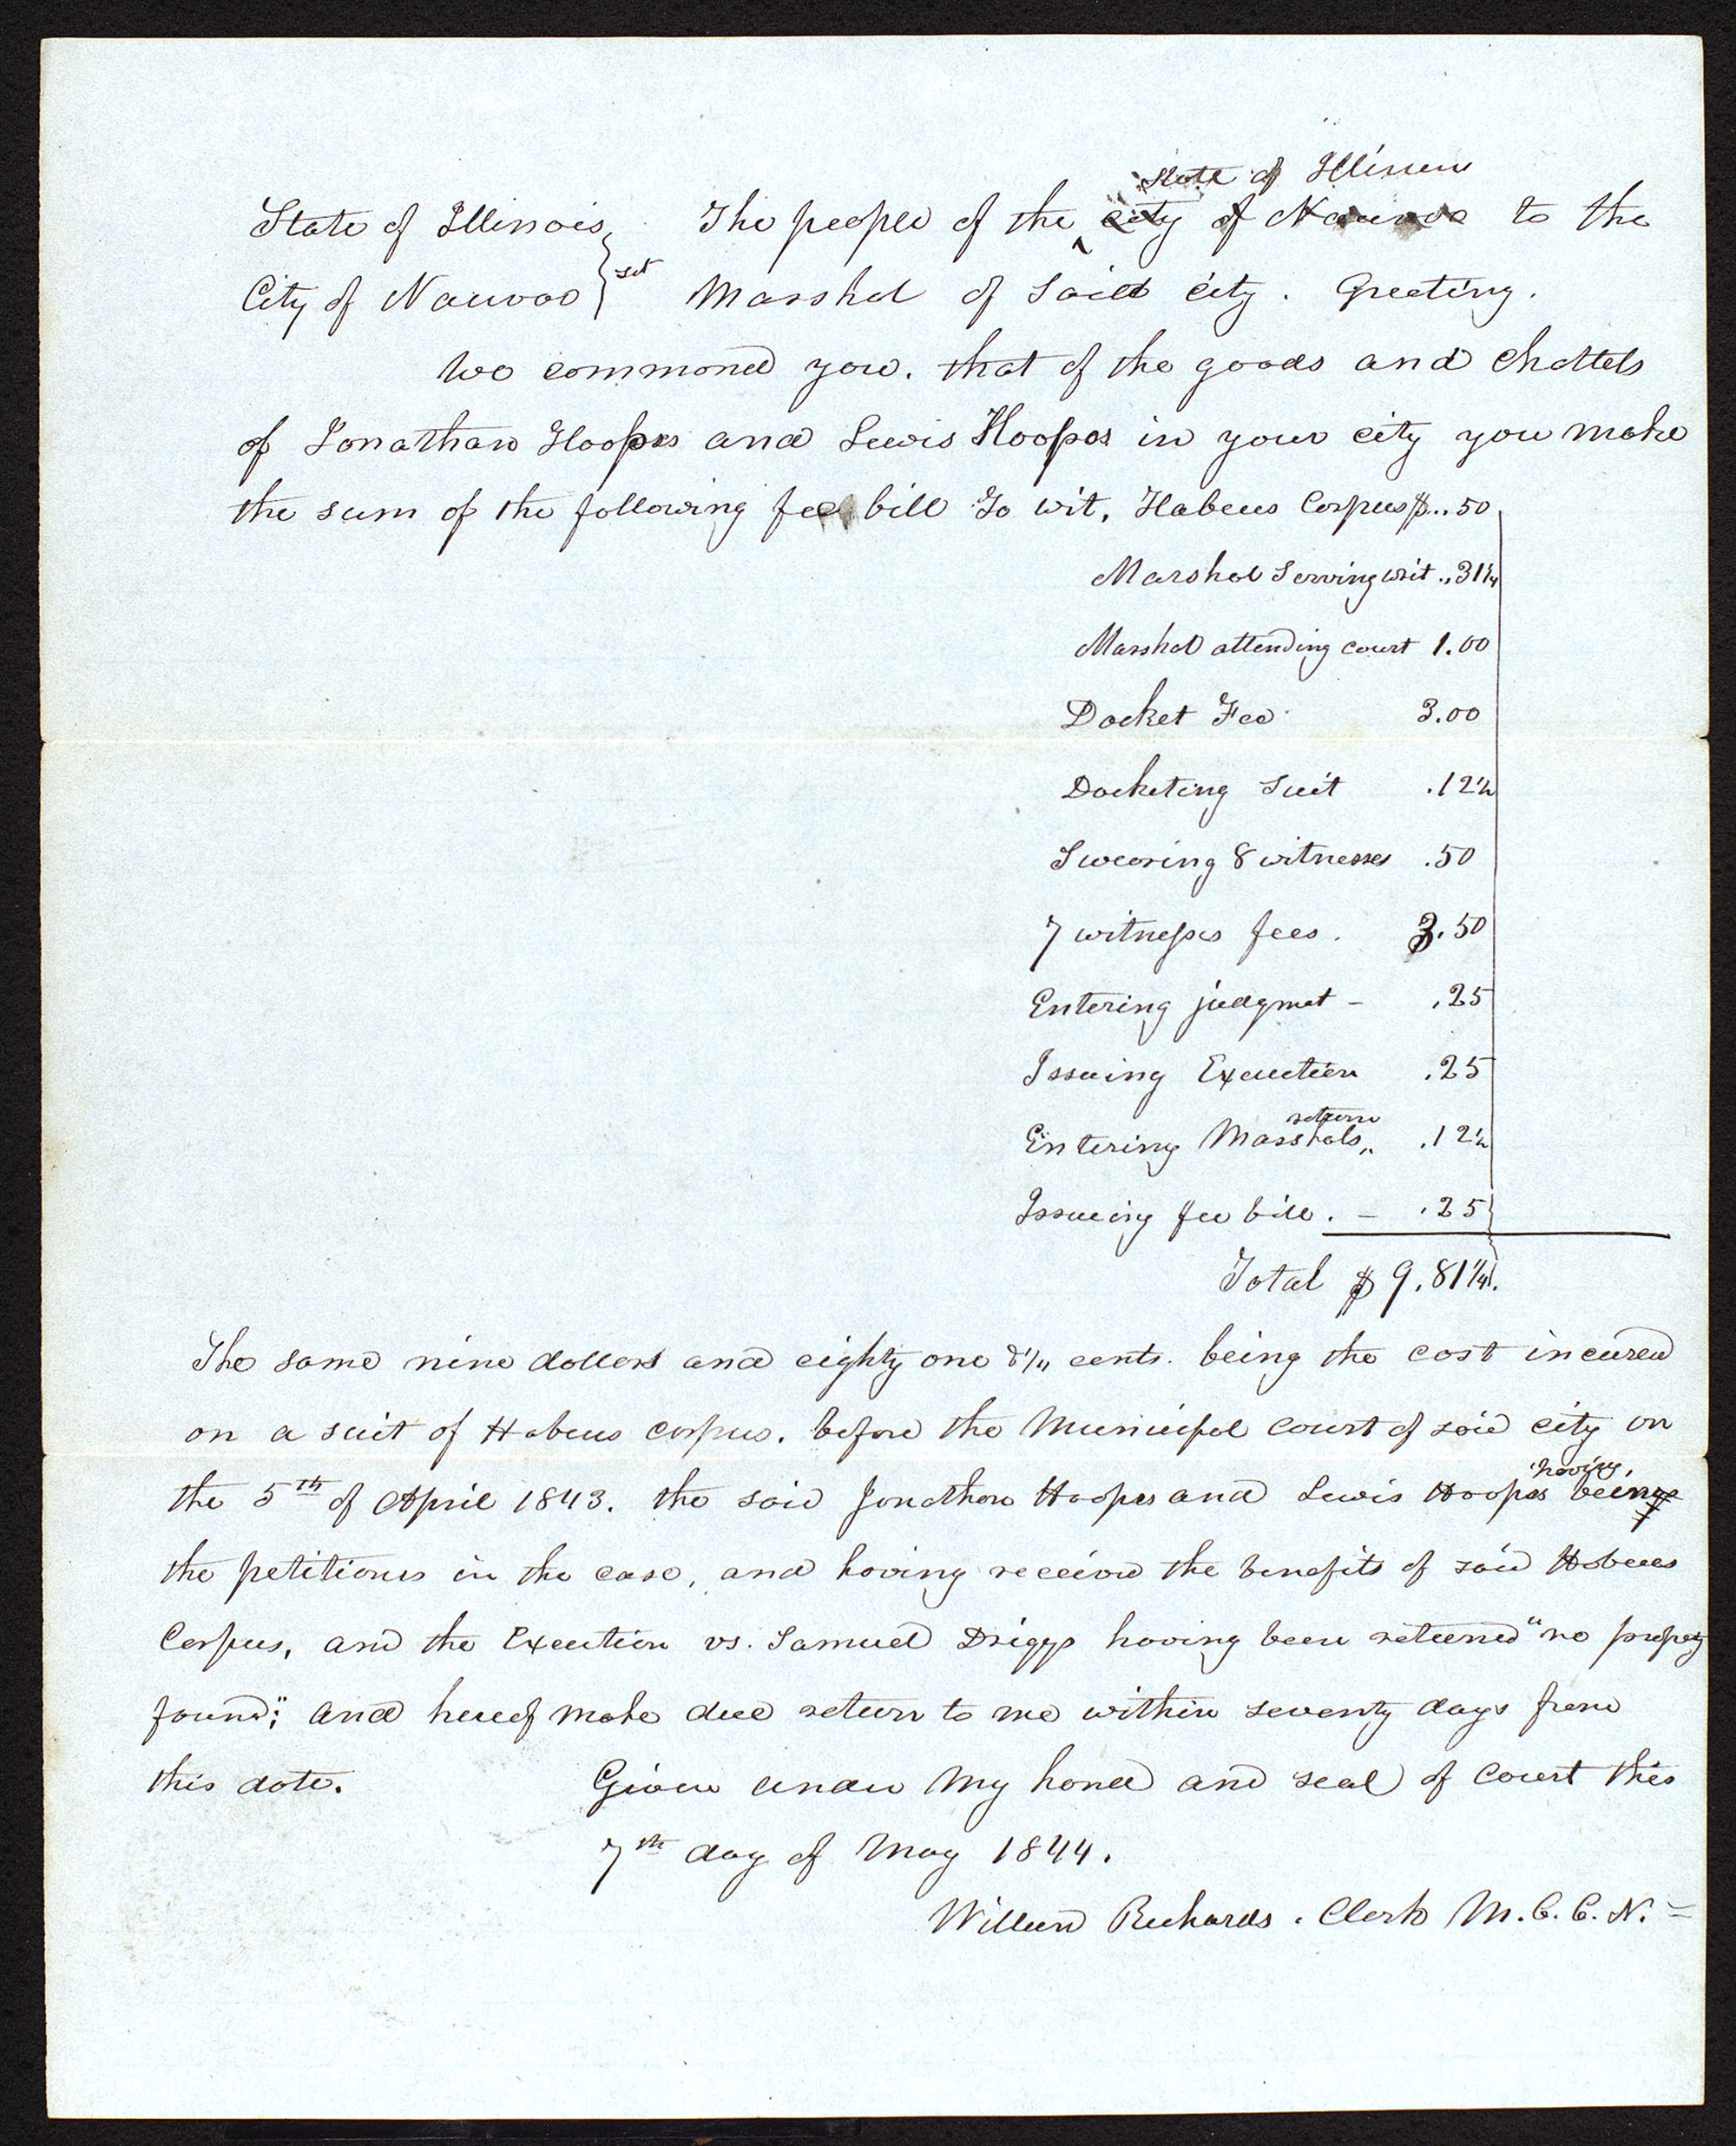 State of Illinois, } sct The people of the ^ State of Illinois city of Nauvoo to the
City of Nauvoo } Marshal of Said city. Greeting.
We command you. that of the goods and chattels
of Jonathan Hoopes and Lewis Hoopes in your city you make
the sum of the following fee bill To wit, Habeus Corpus $..50
Marshal Serving writ .,31 1/4
Marshal attending court 1.00
Docket Fee 3.00
Docketing Suit .12 1/2
Swearing 8 witnesses .50
7 witnesses fees. 3.50
Entering judgmet - .25
Issuing Execution .25
Entering Marshals return .12 1/2
Issueing fee bill. - .25
Total $ 9.81 1/4.
The same nine dollars and eighty one & 1/4 cents. being the cost incured
on a suit of Habeus corpus. before the Municipal court of said city on
the 5th of April 1843. the said Jonathan Hoopes and Lewis Hoopes having being
the petitioners in the case, and having received the benefits of said Habeus
Corpus, and the Execution vs. Samuel Driggs having been returned "no property
found;" and hereof make due return to me within seventy days from
this date. Given under my hand and seal of court this
7th day of May 1844.
Willard Richards. Clerk M.C.C.N.